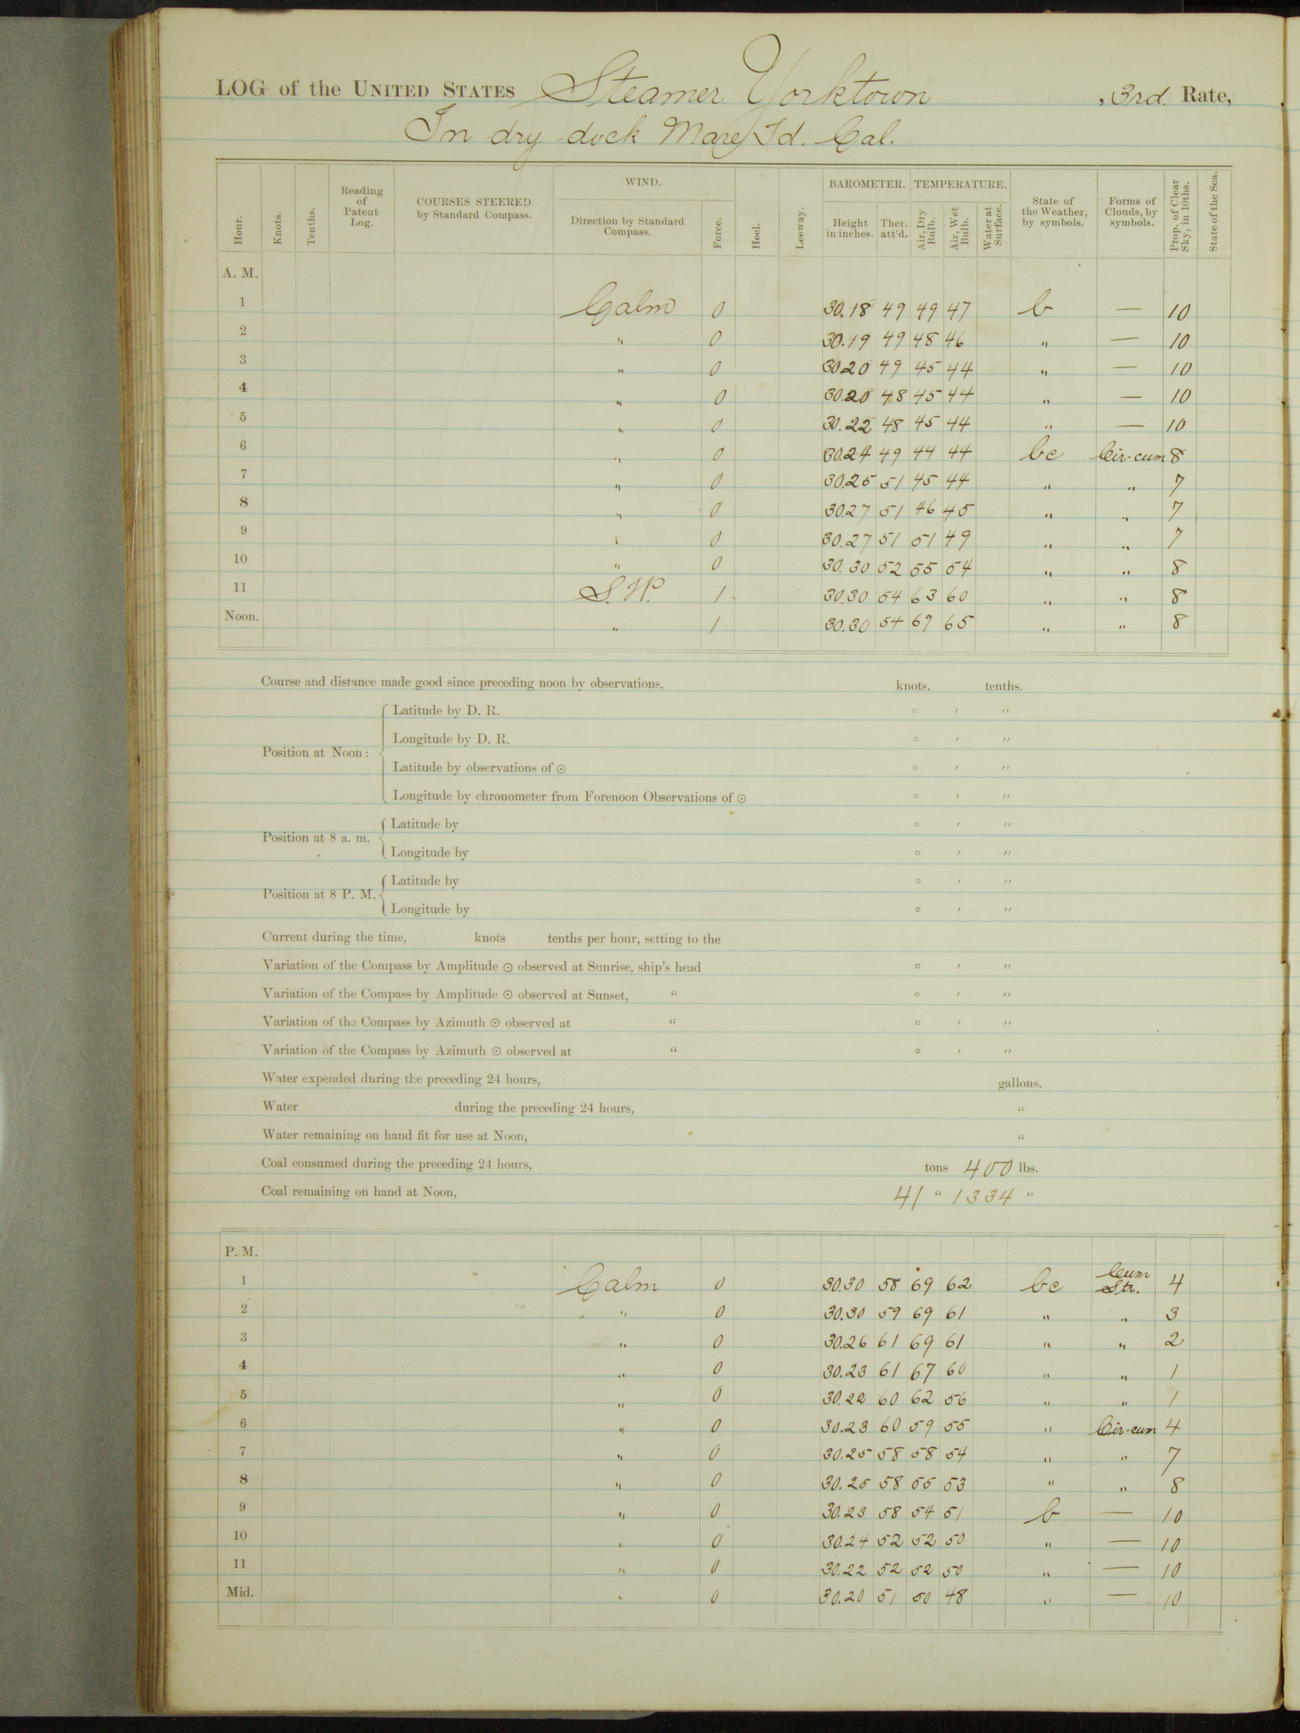 LOG of the UNITED STATES Steamer Yorktown , 3rd Rate,
In dry dock Mare Id. Cal.
Hour. Knots. Tenths. Reading of Patent Log. COURSES STEERED by Standard Compass. WIND. Direction by Standard Compass. Force. Heel. Leeway. BAROMETER. Height in inches. Ther. att'd. TEMPERATURE. Air, Dry Bulb. Air, Wet Bulb. Water at Surface. State of the Weather, by symbols. Forms of Clouds, by symbols. Prop. of Clear Sky, in 10ths. State of the Sea.
A. M.
1 Calm 0 30.18 49 49 47 b — 10
2 " 0 30.19 49 48 46 " — 10
3 " 0 30.20 49 45 44 " — 10
4 " 0 30.20 48 45 44 " — 10
5 " 0 30.22 48 45 44 " — 10
6 " 0 30.24 49 44 44 bc Cir-cum 8
7 " 0 30.25 51 45 44 " " 7
8 " 0 30.27 51 46 45 " " 7
9 " 0 30.27 51 51 49 " " 7
10 " 0 30.30 52 55 54 " " 8
11 S.W. 1 30.30 54 63 60 " " 8
Noon. " 1 30.30 54 69 65 " " 8
Course and distance made good since preceding noon by observations, knots. tenths.
Position at Noon: Latitude by D. R. ° ′ ″
Longitude by D. R. ° ′ ″
Latitude by observations of ☉ ° ′ ″
Longitude by chronometer from Forenoon Observations of ☉ ° ′ ″
Position at 8 a. m. Latitude by ° ′ ″
Longitude by ° ′ ″
Position at 8 P. M. Latitude by ° ′ ″
Longitude by ° ′ ″
Current during the time, knots tenths per hour, setting to the
Variation of the Compass by Amplitude ☉ observed at Sunrise, ship's head ° ′ ″
Variation of the Compass by Amplitude ☉ observed at Sunset, " ° ′ ″
Variation of the Compass by Azimuth ☉ observed at " ° ′ ″
Variation of the Compass by Azimuth ☉ observed at " ° ′ ″
Water expended during the preceding 24 hours, gallons.
Water during the preceding 24 hours, "
Water remaining on hand fit for use at Noon, "
Coal consumed during the preceding 24 hours, tons 400 lbs.
Coal remaining on hand at Noon, 41 " 1334 "
P. M.
1 Calm 0 30.30 58 69 62 bc Cum Str. 4
2 " 0 30.30 59 69 61 " " 3
3 " 0 30.26 61 69 61 " " 2
4 " 0 30.23 61 67 60 " " 1
5 " 0 30.22 60 62 56 " " 1
6 " 0 30.23 60 59 55 " Cir-cum 4
7 " 0 30.25 58 58 54 " " 7
8 " 0 30.25 58 55 53 " " 8
9 " 0 30.23 58 54 51 b — 10
10 " 0 30.24 52 52 50 " — 10
11 " 0 30.22 52 52 50 " — 10
Mid. " 0 30.20 51 50 48 " — 10